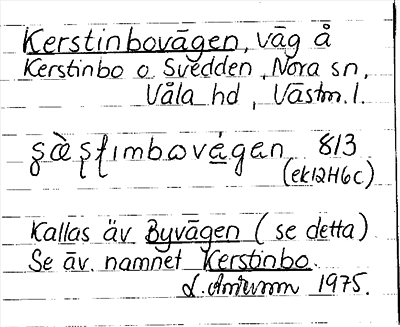 Kerstinbovägen, väg å
Kerstinbo o Svedden, Nora sn,
Våla hd, Västm. l.
813
(ek12H6c)
Kallas äv Byvägen (se detta)
Se äv. namnet Kerstinbo.
1975.